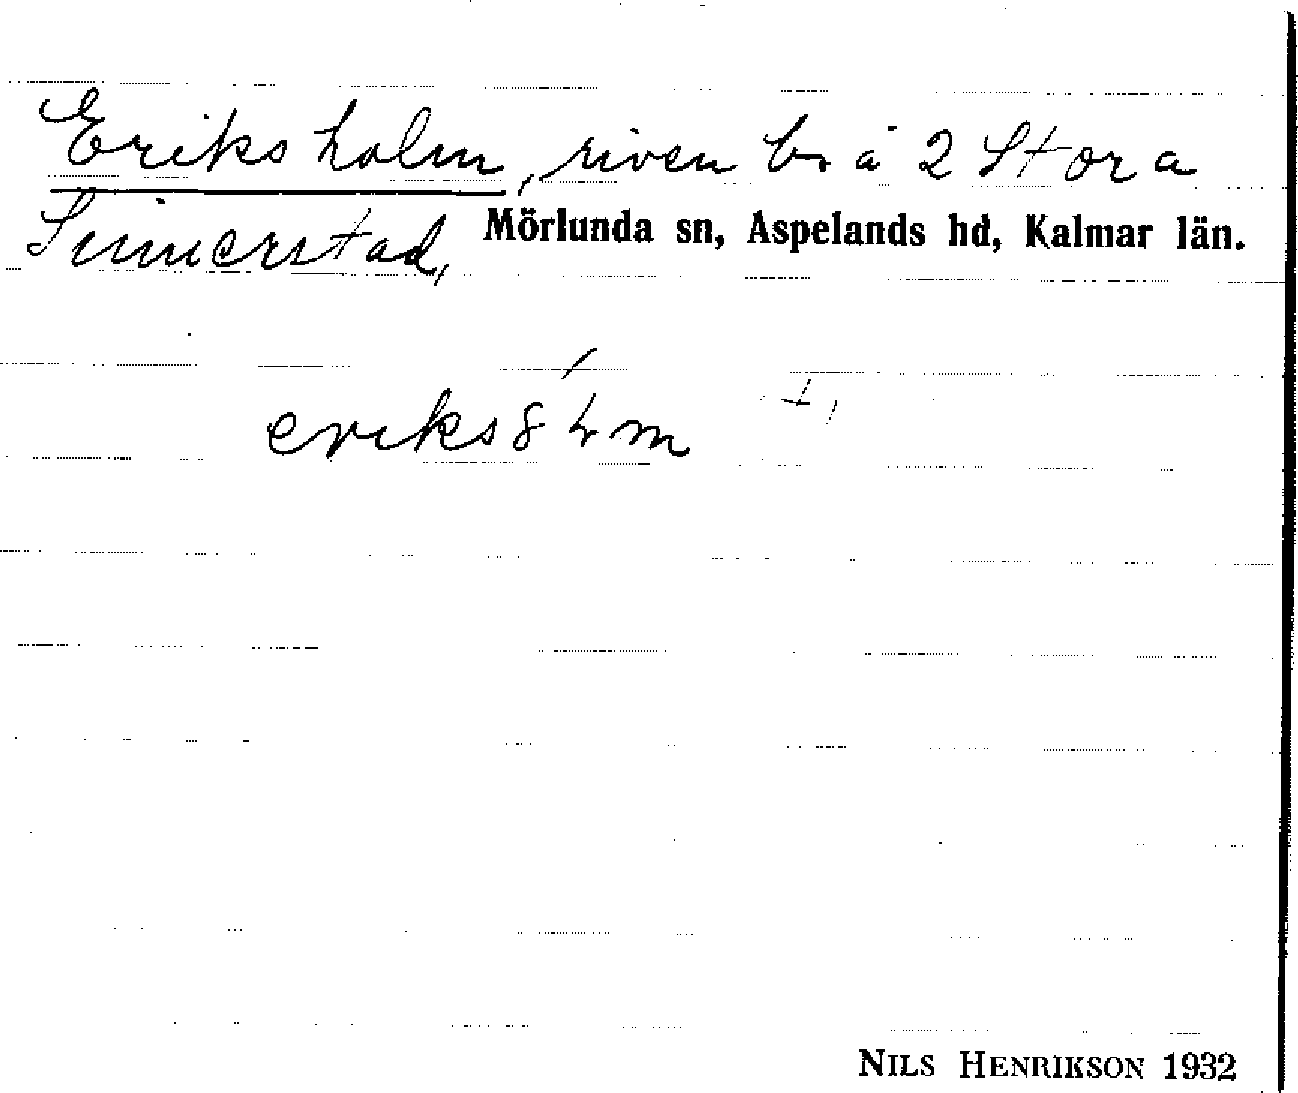 Eriksholm, riven b. å 2 Stora
Simerstad, Mörlunda sn, Aspelands hd, Kalmar län.
NILS HENRIKSON 1932